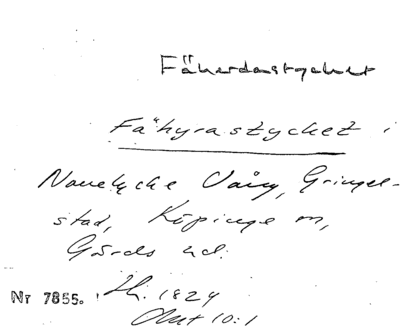 Fäherdastychet
Fähyrastycket i
Navelycke Vång, Gringel-
stad, Köpinge sn,
Gärds hd.
Nr 7855. Sh. 1824
Akt 10:1